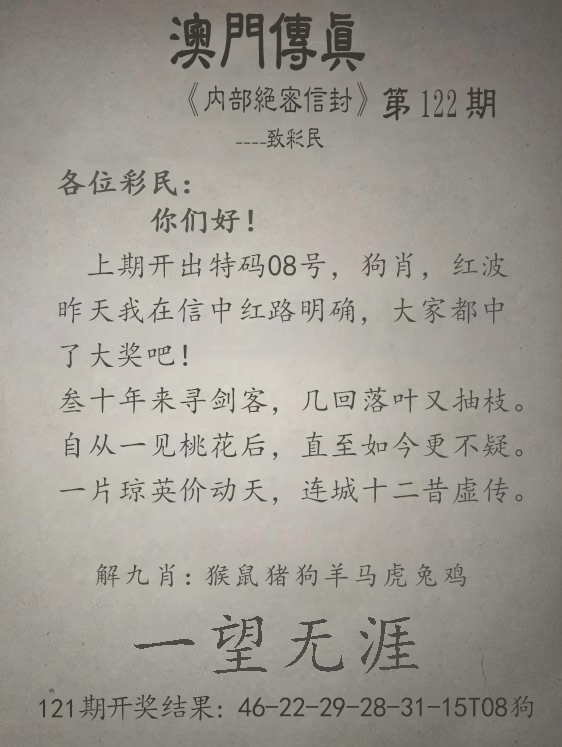 澳門傳眞
《内部絕密信封》第122期
----致彩民
各位彩民：
你们好！
上期开出特码08号，狗肖，红波
昨天我在信中红路明确，大家都中
了大奖吧！
叁十年来寻剑客，几回落叶又抽枝。
自从一见桃花后，直至如今更不疑。
一片琼英价动天，连城十二昔虚传。
解九肖：猴鼠猪狗羊马虎兔鸡
一望无涯
121期开奖结果：46-22-29-28-31-15T08狗